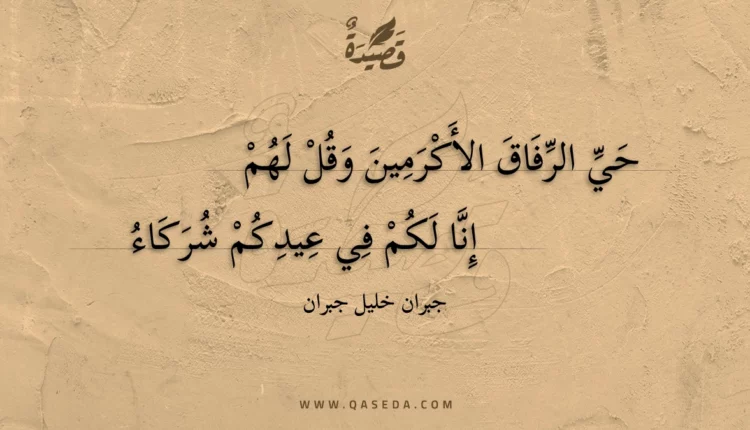 قَصِيْدَةٌ
حَيِّ الرِّفَاقَ الأَكْرَمِينَ وَقُلْ لَهُمْ
إِنَّا لَكُمْ فِي عِيدِكُمْ شُرَكَاءُ
جبران خليل جبران
WWW.QASEDA.COM